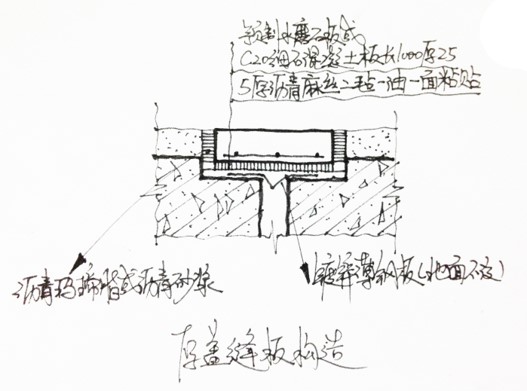 预制水磨石板或
C20细石混凝土板长1000厚25
5厚沥青麻丝二毡一油一面粘贴
沥青玛𤧛脂或沥青砂浆
镀锌薄钢板(地面不设)
厚盖缝板构造